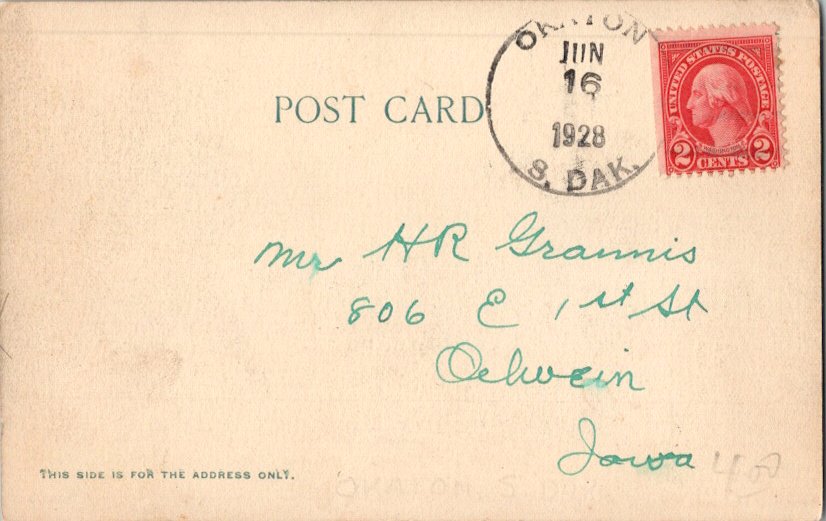 OKATON
JUN
16
1928
S. DAK.
UNITED STATES POSTAGE
WASHINGTON
2 CENTS 2
POST CARD
Mr HR Grannis
806 E 1st St
Oelwein
Iowa
THIS SIDE IS FOR THE ADDRESS ONLY.